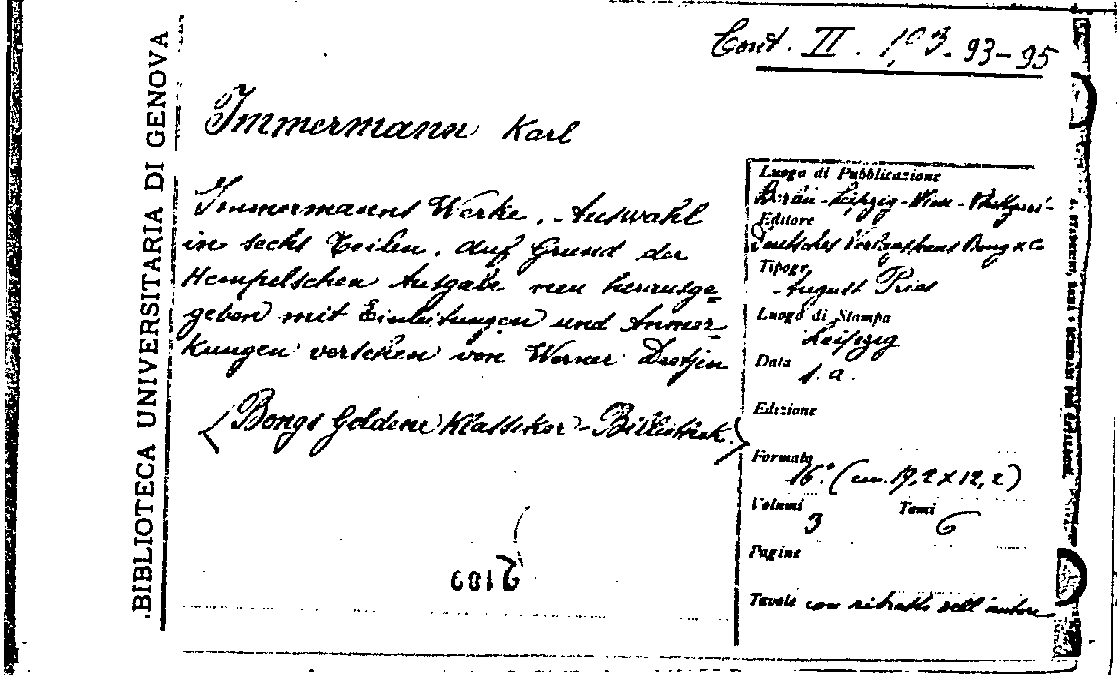 Cont. II. 103. 93-95
BIBLIOTECA UNIVERSITARIA DI GENOVA
Immermann Karl
Immermanns Werke. Auswahl
in sechs Teilen. Auf Grund der
Hempelschen Ausgabe neu herausge=
geben mit Einleitungen und Anmer=
kungen versehen von Werner Deetjen
(Bongs Goldene Klassiker-Bibliothek.)
Luogo di Pubblicazione
Berlin-Leipzig-Wien-
Editore
Deutsches Verlagshaus Bong & Co
Tipogr.
August Pries
Luogo di Stampa
Leipzig
Data
s. a.
Edizione
Formato
16° (cm. 17,2 x 12,2)
Volumi 3 Tomi 6
Pagine
Tavole con ritratto dell'autore